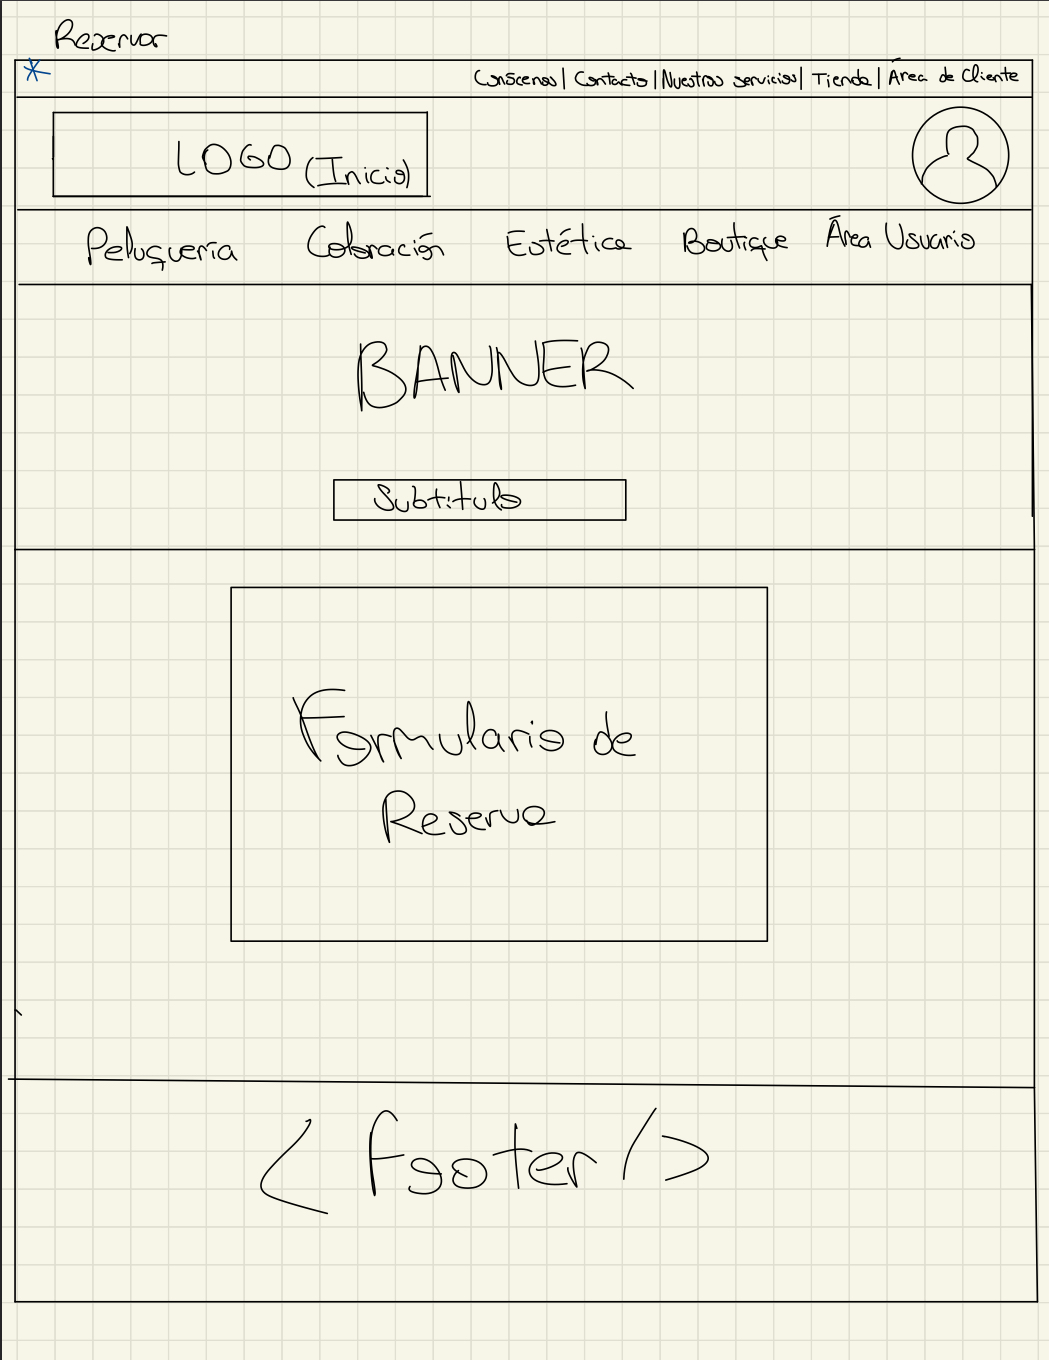 Reservar
*
Conócenos | Contacto | Nuestros servicios | Tienda | Área de Cliente
LOGO (Inicio)
Peluquería Coloración Estética Boutique Área Usuario
BANNER
Subtitulo
Formulario de
Reserva
< footer />